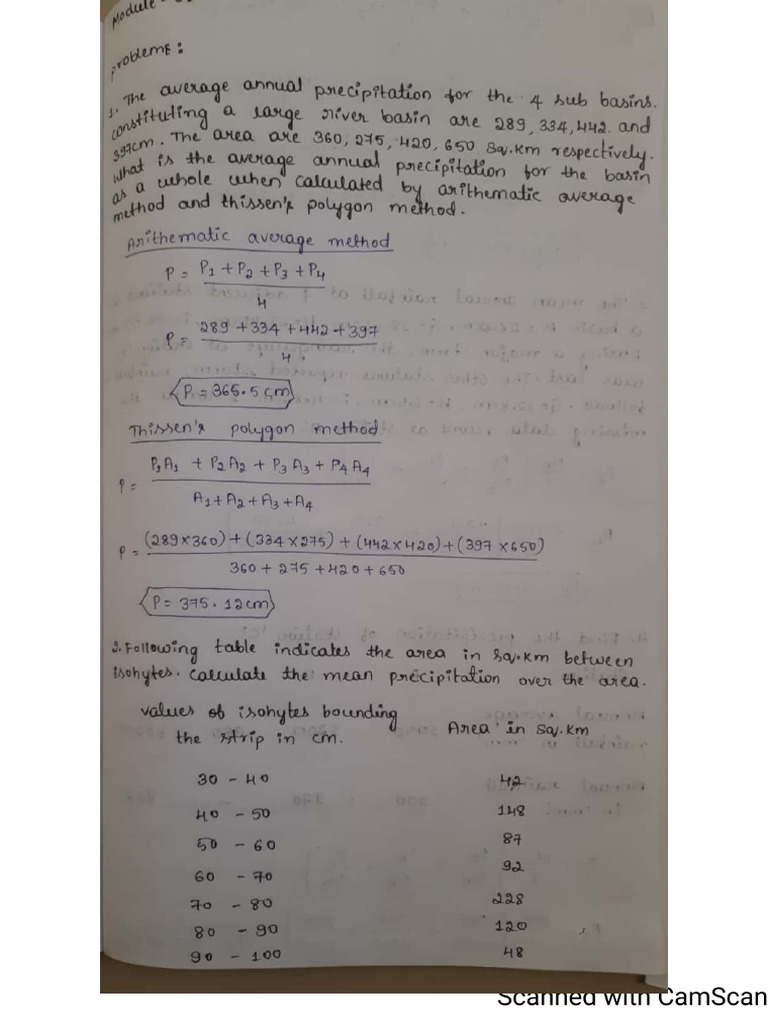 Module -
problems:
1. The average annual precipitation for the 4 sub basins.
constituting a large river basin are 289, 334, 442. and
397cm. The area are 360, 275, 420, 650 sq.km respectively.
what is the average annual precipitation for the basin
as a whole when calculated by arithematic average
method and thissen's polygon method.
Arithematic average method
P = P1 + P2 + P3 + P4
4
P = 289 + 334 + 442 + 397
4
P = 365.5 cm
Thissen's polygon method
P = P1A1 + P2A2 + P3A3 + P4A4
A1 + A2 + A3 + A4
P = (289×360) + (334×275) + (442×420) + (397×650)
360 + 275 + 420 + 650
P = 375.12cm
2. Following table indicates the area in sq.km between
isohytes. calculate the mean precipitation over the area.
values of isohytes bounding
the strip in cm. Area in sq.km
30 - 40 42
40 - 50 148
50 - 60 87
60 - 70 92
70 - 80 228
80 - 90 120
90 - 100 48
Scanned with CamScan